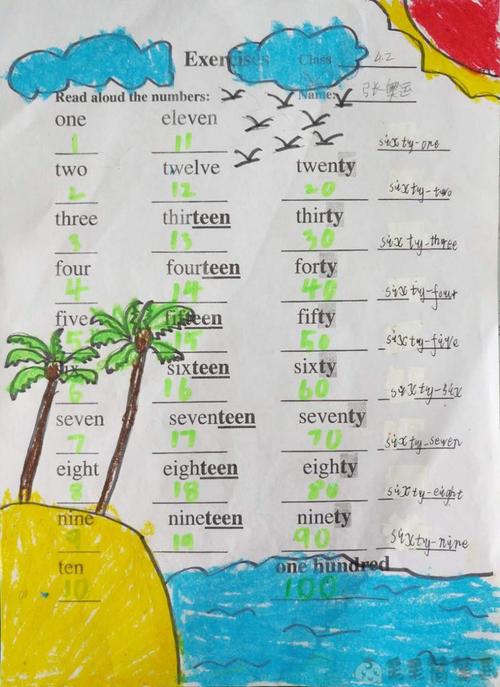 Exercises Class 4.2
Read aloud the numbers: Name: 张奥运
one eleven
1 11 sixty-one
two twelve twenty
2 12 20 sixty-two
three thirteen thirty
3 13 30 sixty-three
four fourteen forty
4 14 40 sixty-four
five fifteen fifty
5 15 50 sixty-five
six sixteen sixty
6 16 60 sixty-six
seven seventeen seventy
7 17 70 sixty-seven
eight eighteen eighty
8 18 80 sixty-eight
nine nineteen ninety
9 19 90 sixty-nine
ten one hundred
10 100